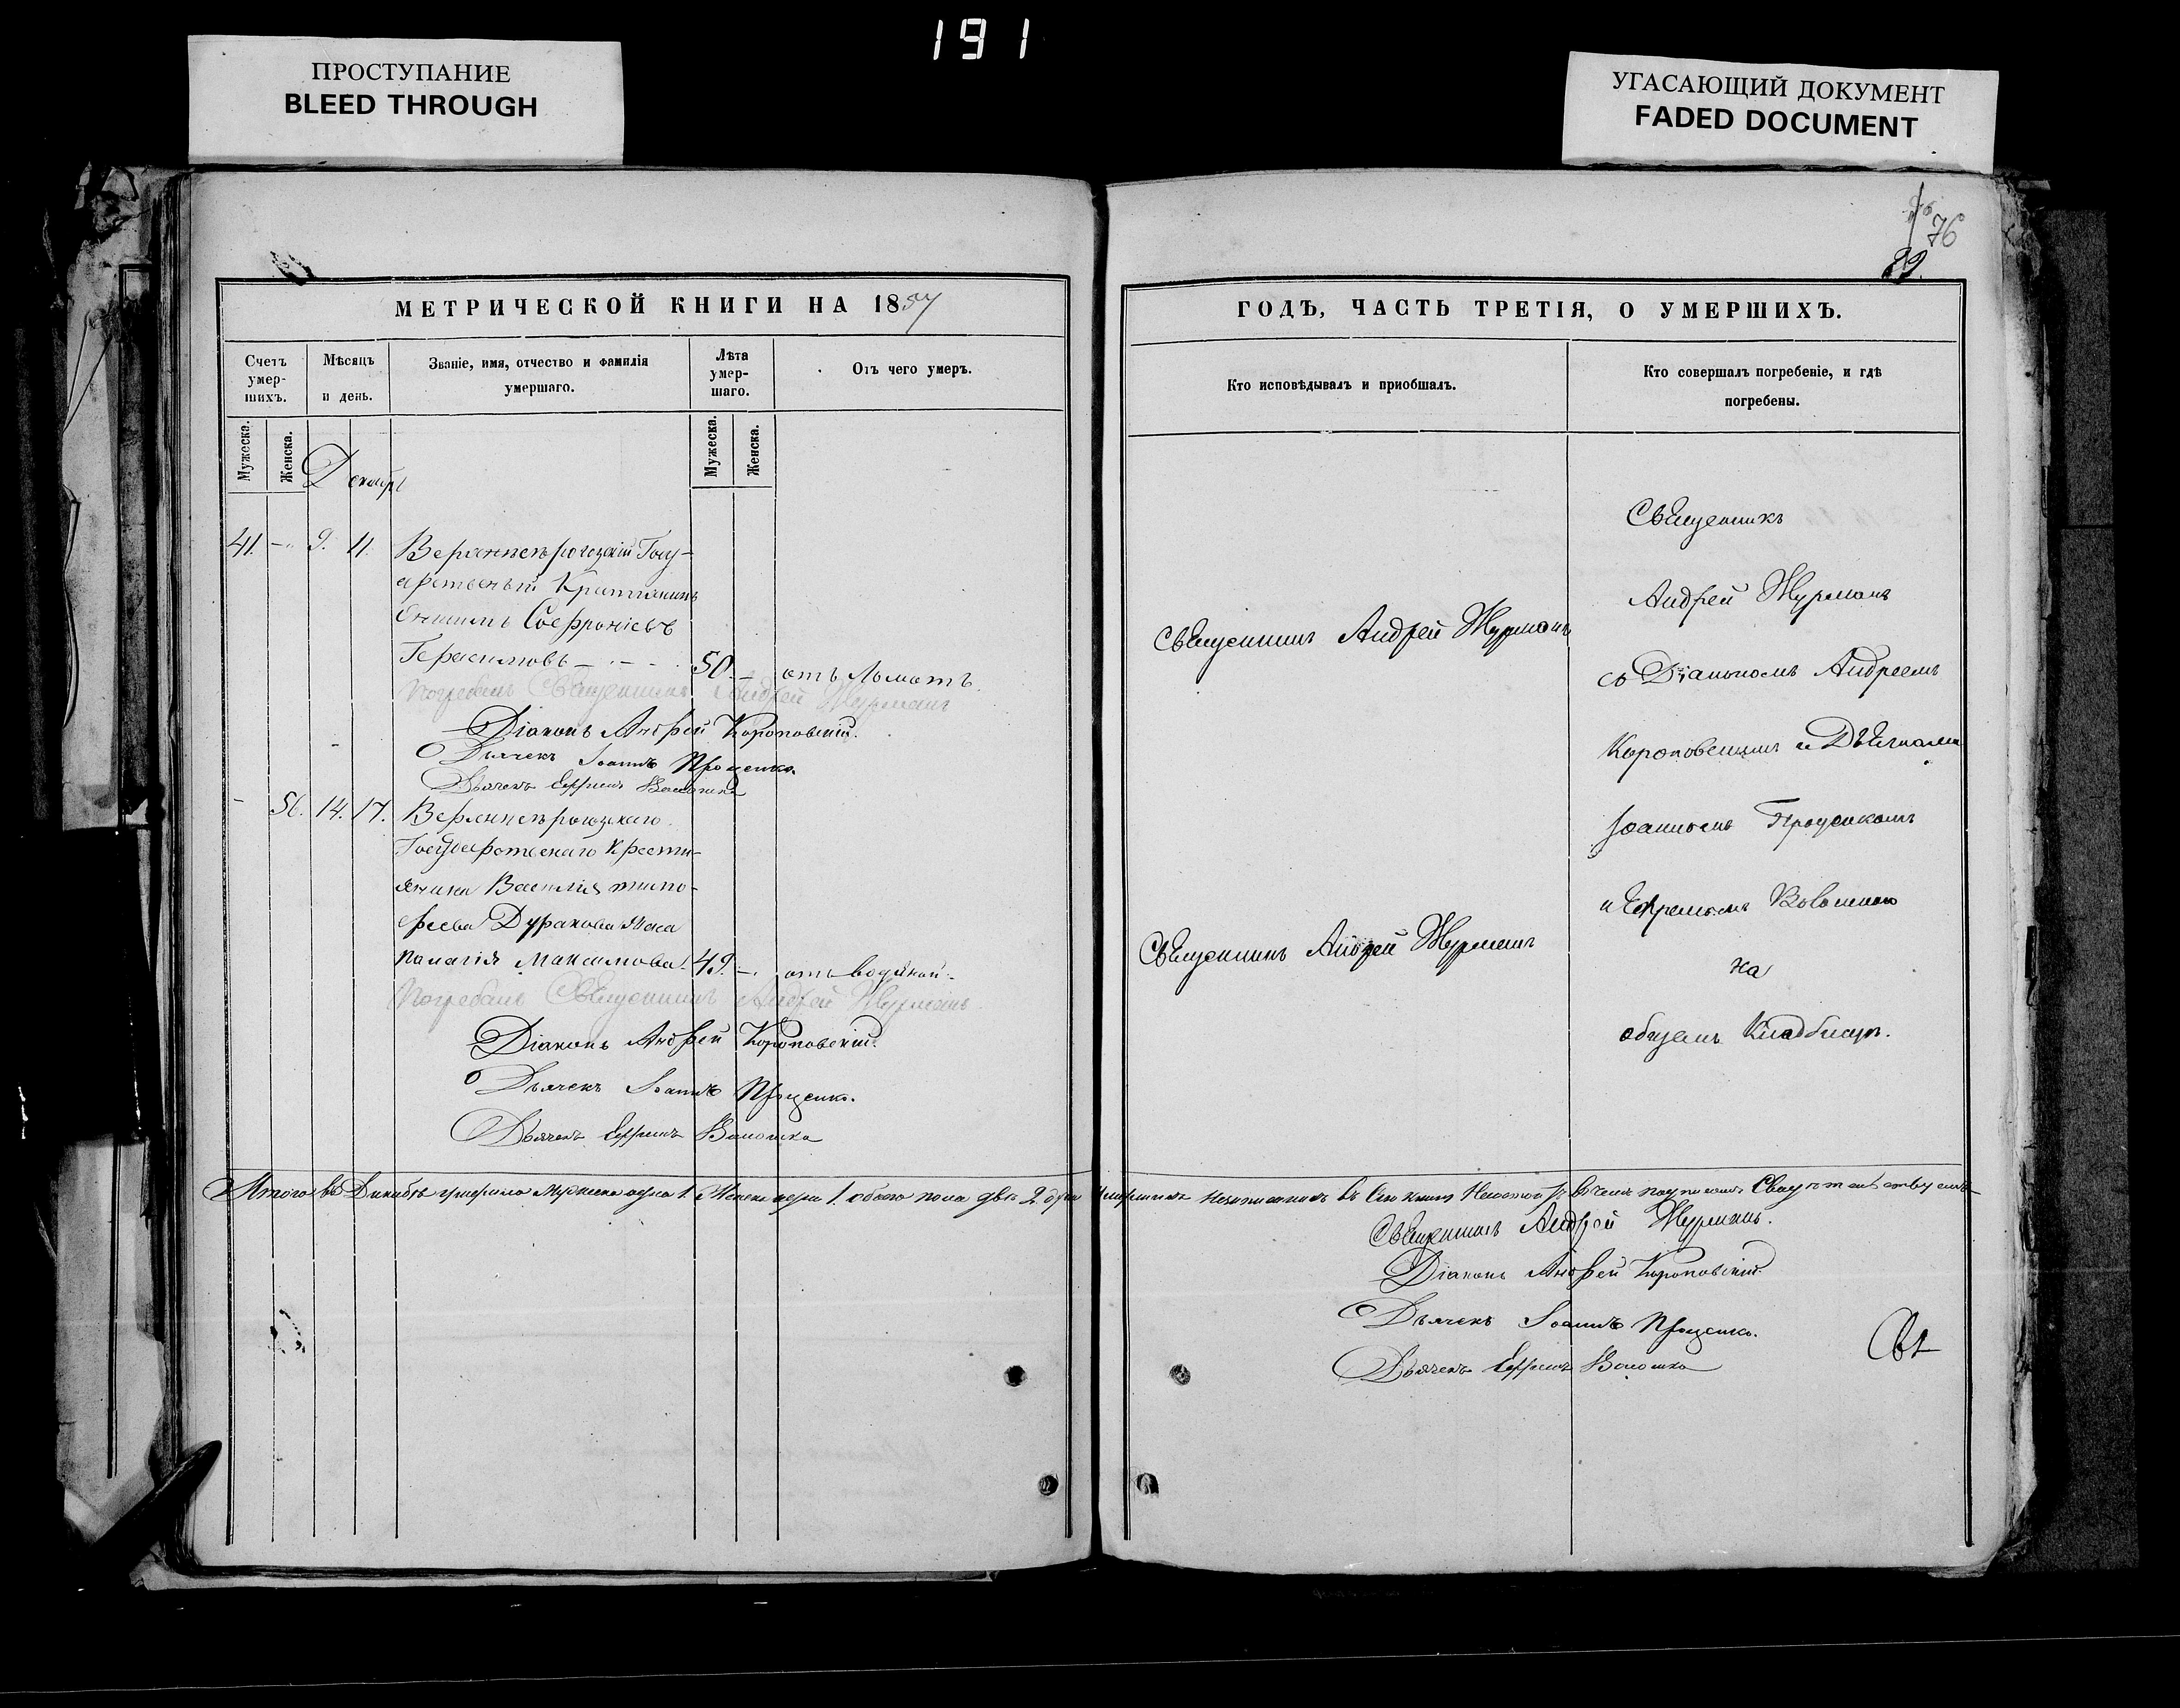 191
ПРОСТУПАНИЕ
BLEED THROUGH
УГАСАЮЩИЙ ДОКУМЕНТ
FADED DOCUMENT
76
89.
МЕТРИЧЕСКОЙ КНИГИ НА 1857
Счетъ умер-шихъ.
Мѣсяцъ и день.
Званіе, имя, отчество и фамилія умершаго.
Лѣта умер-шаго.
Отъ чего умеръ.
Мужеска.
Женска.
Мужеска.
Женска.
Декабрь
41. - 9. 11.
Герасимовъ - 50. - отъ Ломотъ.
Погребалъ Священникъ Андрей Журманъ
Діаконъ Андрей Короповскій.
Дьячекъ Іоаннъ Проценко.
Дьячекъ Ефремъ Волошко
- 56. 14. 17.
Государственаго Крести-
янина Василія Тимо-
феева Дуракова Жена
Палагія Максимова. 49. - отъ водяной.
Погребалъ Священникъ Андрей Журманъ
Діаконъ Андрей Короповскій.
Дьячекъ Іоаннъ Проценко.
Дьячекъ Ефремъ Волошко
ГОДЪ, ЧАСТЬ ТРЕТІЯ, О УМЕРШИХЪ.
Кто исповѣдывалъ и пріобщалъ.
Кто совершалъ погребеніе, и гдѣ
погребены.
Священникъ Андрей Журманъ
Священникъ Андрей Журманъ
Священникъ
Андрей Журманъ
съ Діакономъ Андреемъ
Короповскимъ и Дьячками
Іоанномъ Проценкомъ
и Ефремомъ Волошкою
на
общемъ Кладбищѣ.
Итого въ Декабрѣ умерло Мужеска одна 1. Женска одна 1. обоего пола двѣ 2 души
Священникъ Андрей Журманъ.
Діаконъ Андрей Короповскій.
Дьячекъ Іоаннъ Проценко.
Дьячекъ Ефремъ Волошко